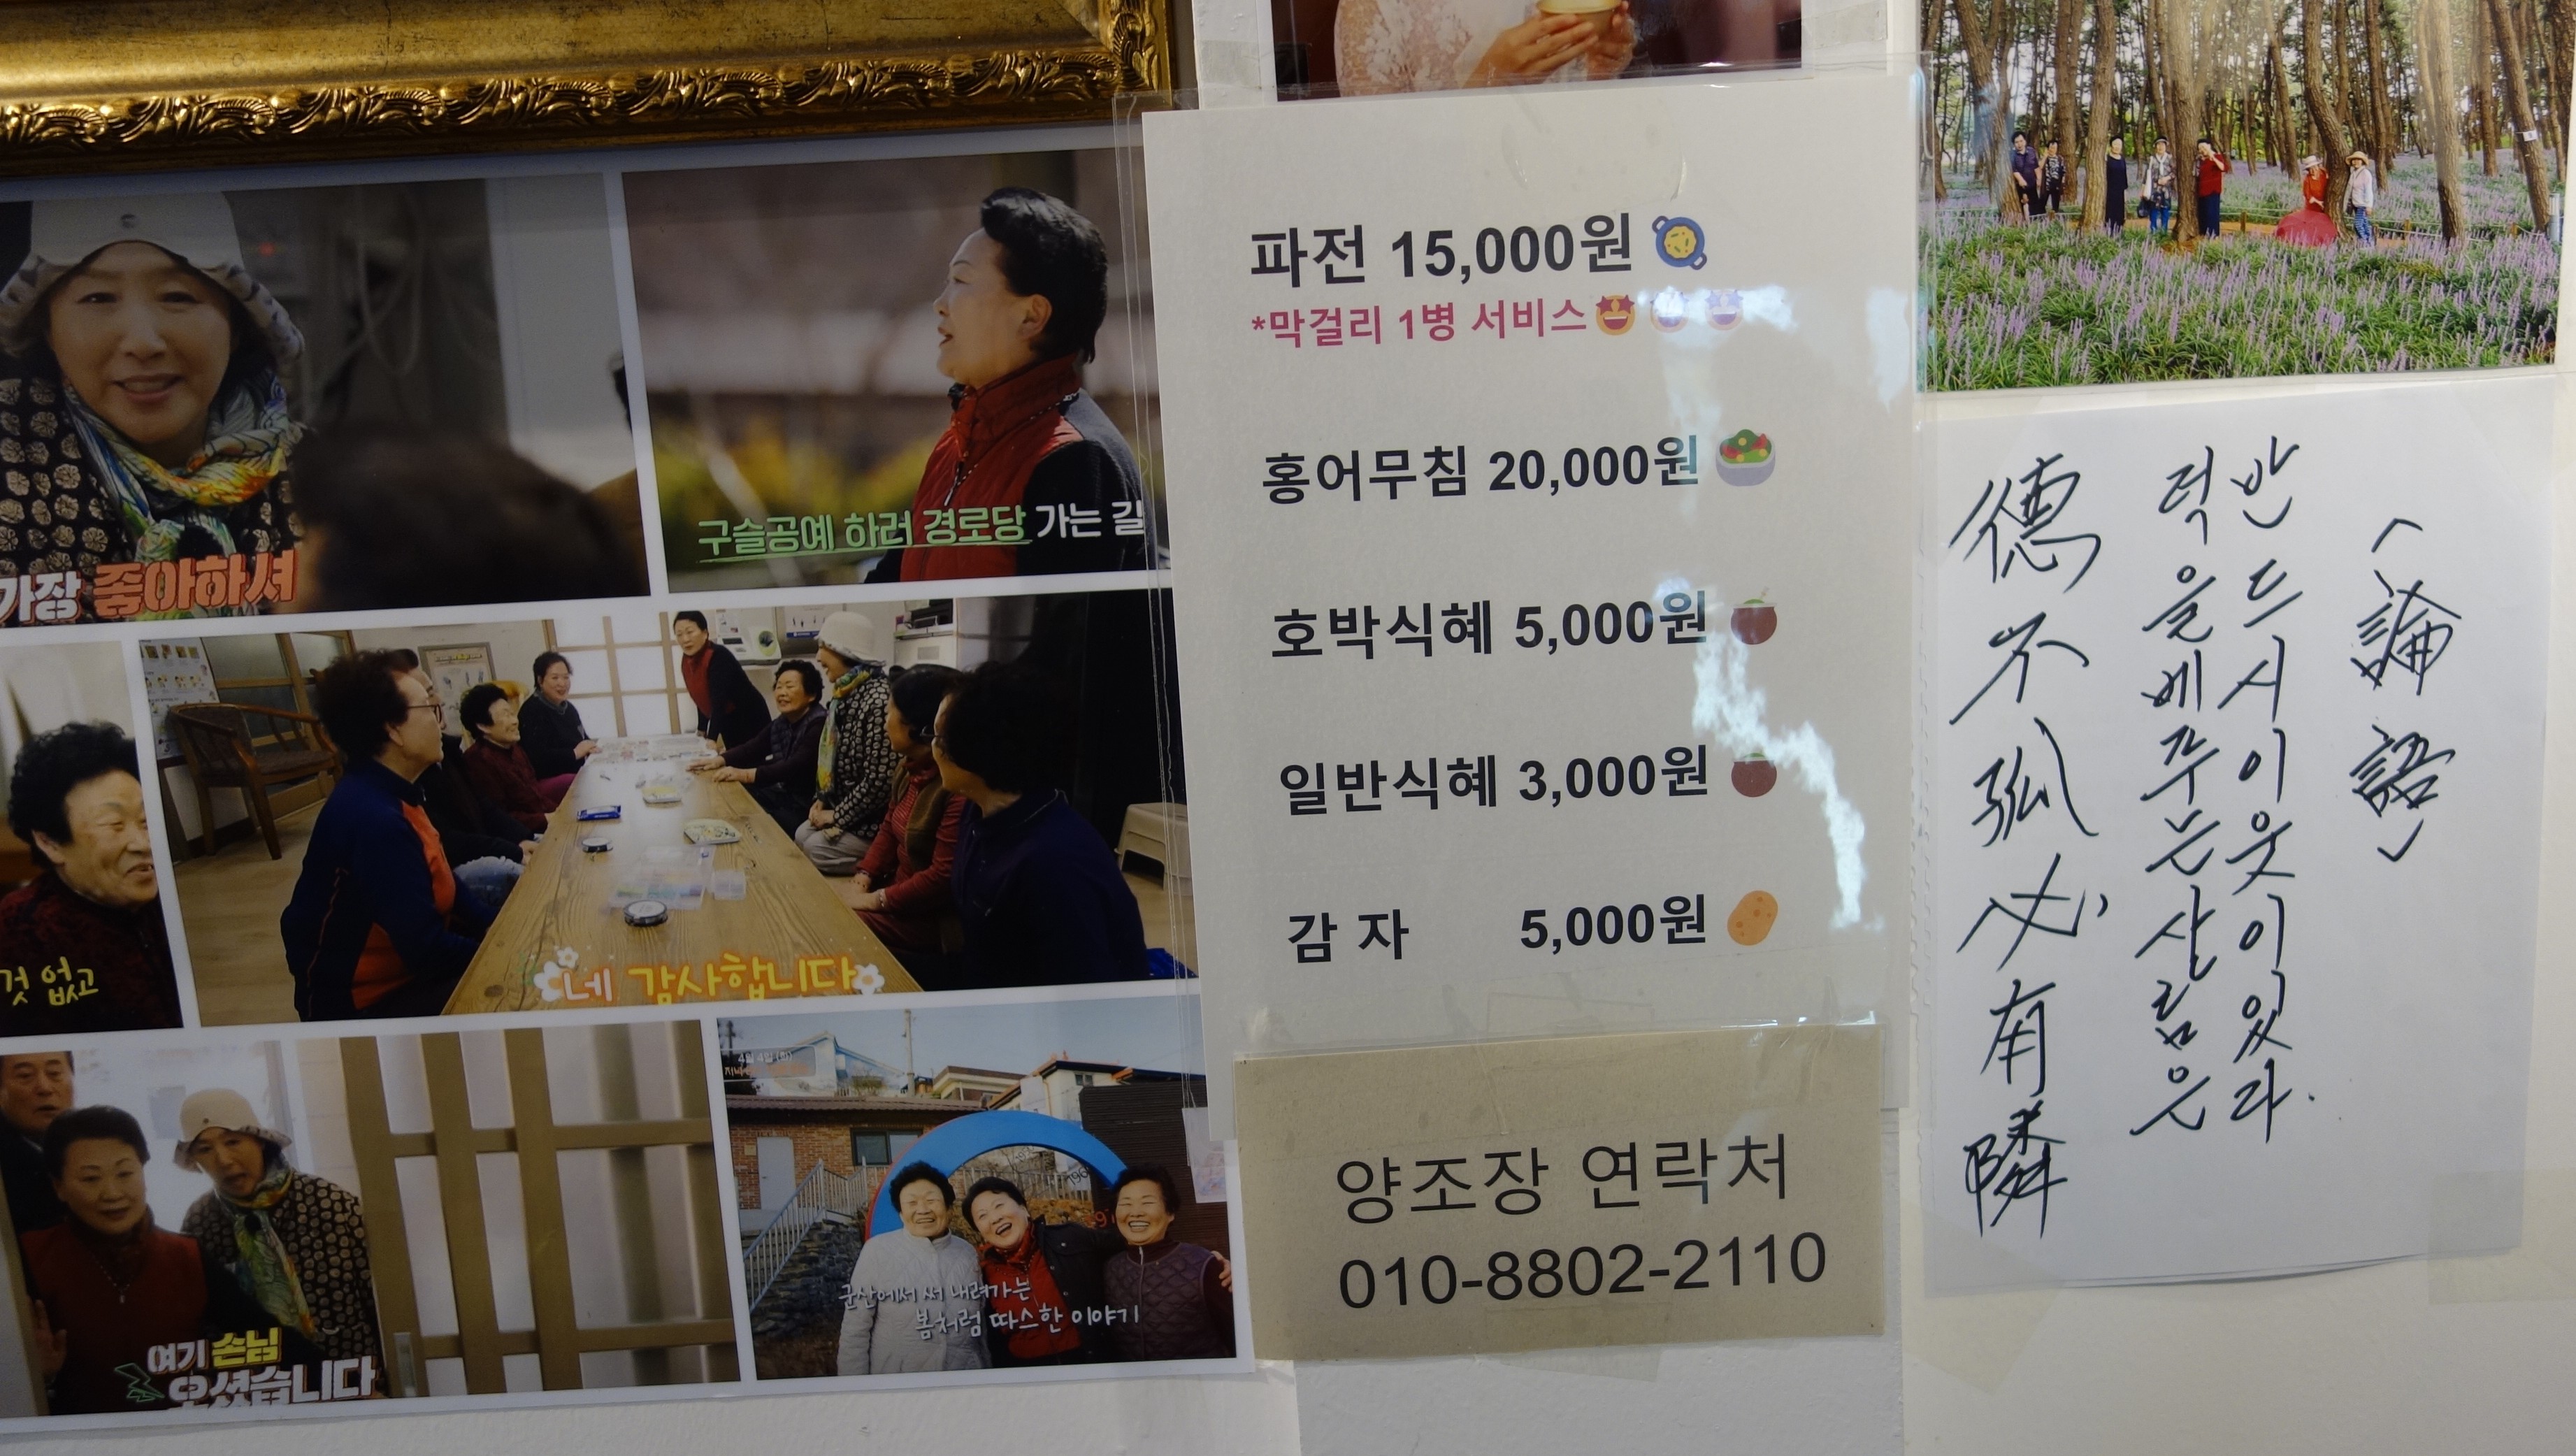 가장 좋아하셔
구슬공예 하러 경로당 가는 길
것 없고
네 감사합니다
여기 손님
오셨습니다
4월 4일
군산에서 써 내려가는
봄처럼 따스한 이야기
파전 15,000원
*막걸리 1병 서비스
홍어무침 20,000원
호박식혜 5,000원
일반식혜 3,000원
감 자 5,000원
양조장 연락처
010-8802-2110
德不孤必有隣
덕을 베푸는 사람은
반드시 이웃이 있다.
<論語>